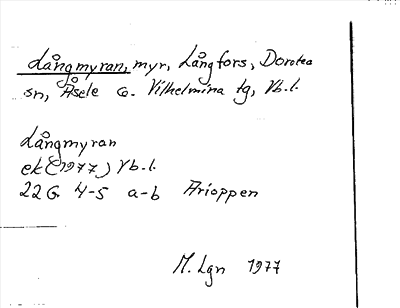 Långmyran, myr, Långfors, Dorotea
sn, Åsele o. Vilhelmina tg, Vb. l.
Långmyran
ek (1977) Vb. l.
22 G 4-5 a-b Arioppen
M. Lgn 1977